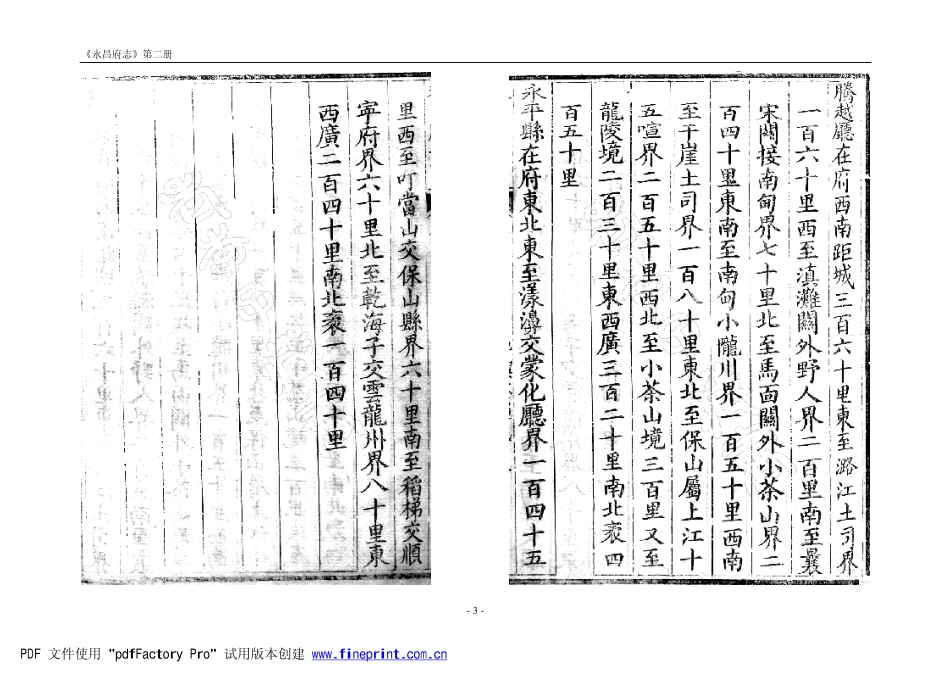 《永昌府志》第二册
騰越廳在府西南距城三百六十里東至潞江土司界
一百六十里西至滇灘關外野人界二百里南至曩
宋關接南甸界七十里北至馬面關外小茶山界二
百四十里東南至南甸小隴川界一百五十里西南
至干崖土司界一百八十里東北至保山屬上江十
五喧界二百五十里西北至小茶山境三百里又至
龍陵境二百三十里東西廣三百二十里南北袤四
百五十里
永平縣在府東北東至漾濞交蒙化廳界一百四十五
里西至叮當山交保山縣界六十里南至稻梯交順
寧府界六十里北至乾海子交雲龍州界八十里東
西廣二百四十里南北袤一百四十里
- 3 -
PDF 文件使用 "pdfFactory Pro" 试用版本创建 www.fineprint.com.cn